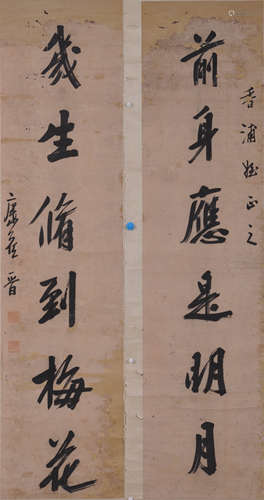 香浦姪正之
前身應是明月
幾生脩到梅花